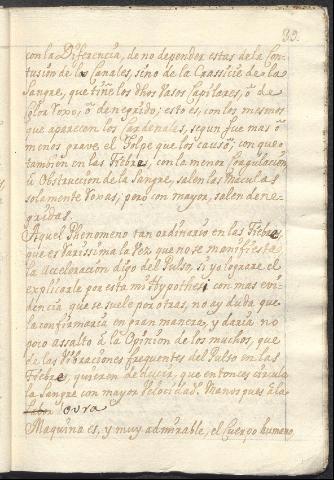 89.
con la Diferencia, de no depender estas de la Con-
tusión de los Canales, sino de la Crassicie de la
Sangre, que tiñe los dhos Vasos Capilares, ō de
Color Roxo, ō denegrido; esto es, con los mesmos
que aparecen los Cardenales, segun fue mas ō
menos grave el Golpe que los causō; con que
tambien en las Fiebres, con la menor Coagulación
ū Obstruccion de la Sangre, salen las Maculas
solamente Roxas; pero con mayor, salen dene-
gridas.
Aquel Phenomeno tan ordinario en las Fiebres
que es rarissima la Vez que no se manifieste
la Acceleracion digo del Pulso, si yo lograre el
explicarle por esta mi Hypothesi con mas evi-
dencia que se suele por otras, no ay duda que
la confirmaria en gran manera, y daria no
poco assalto à la Opinion de los muchos, que
de las Vibraciones frequentes del Pulso en las
Fiebres, quieren deducir, que entonces circula
la Sangre con mayor Velocidad. Manos pues à la
obra
Maquina es, y muy admirable, el Cuerpo humano